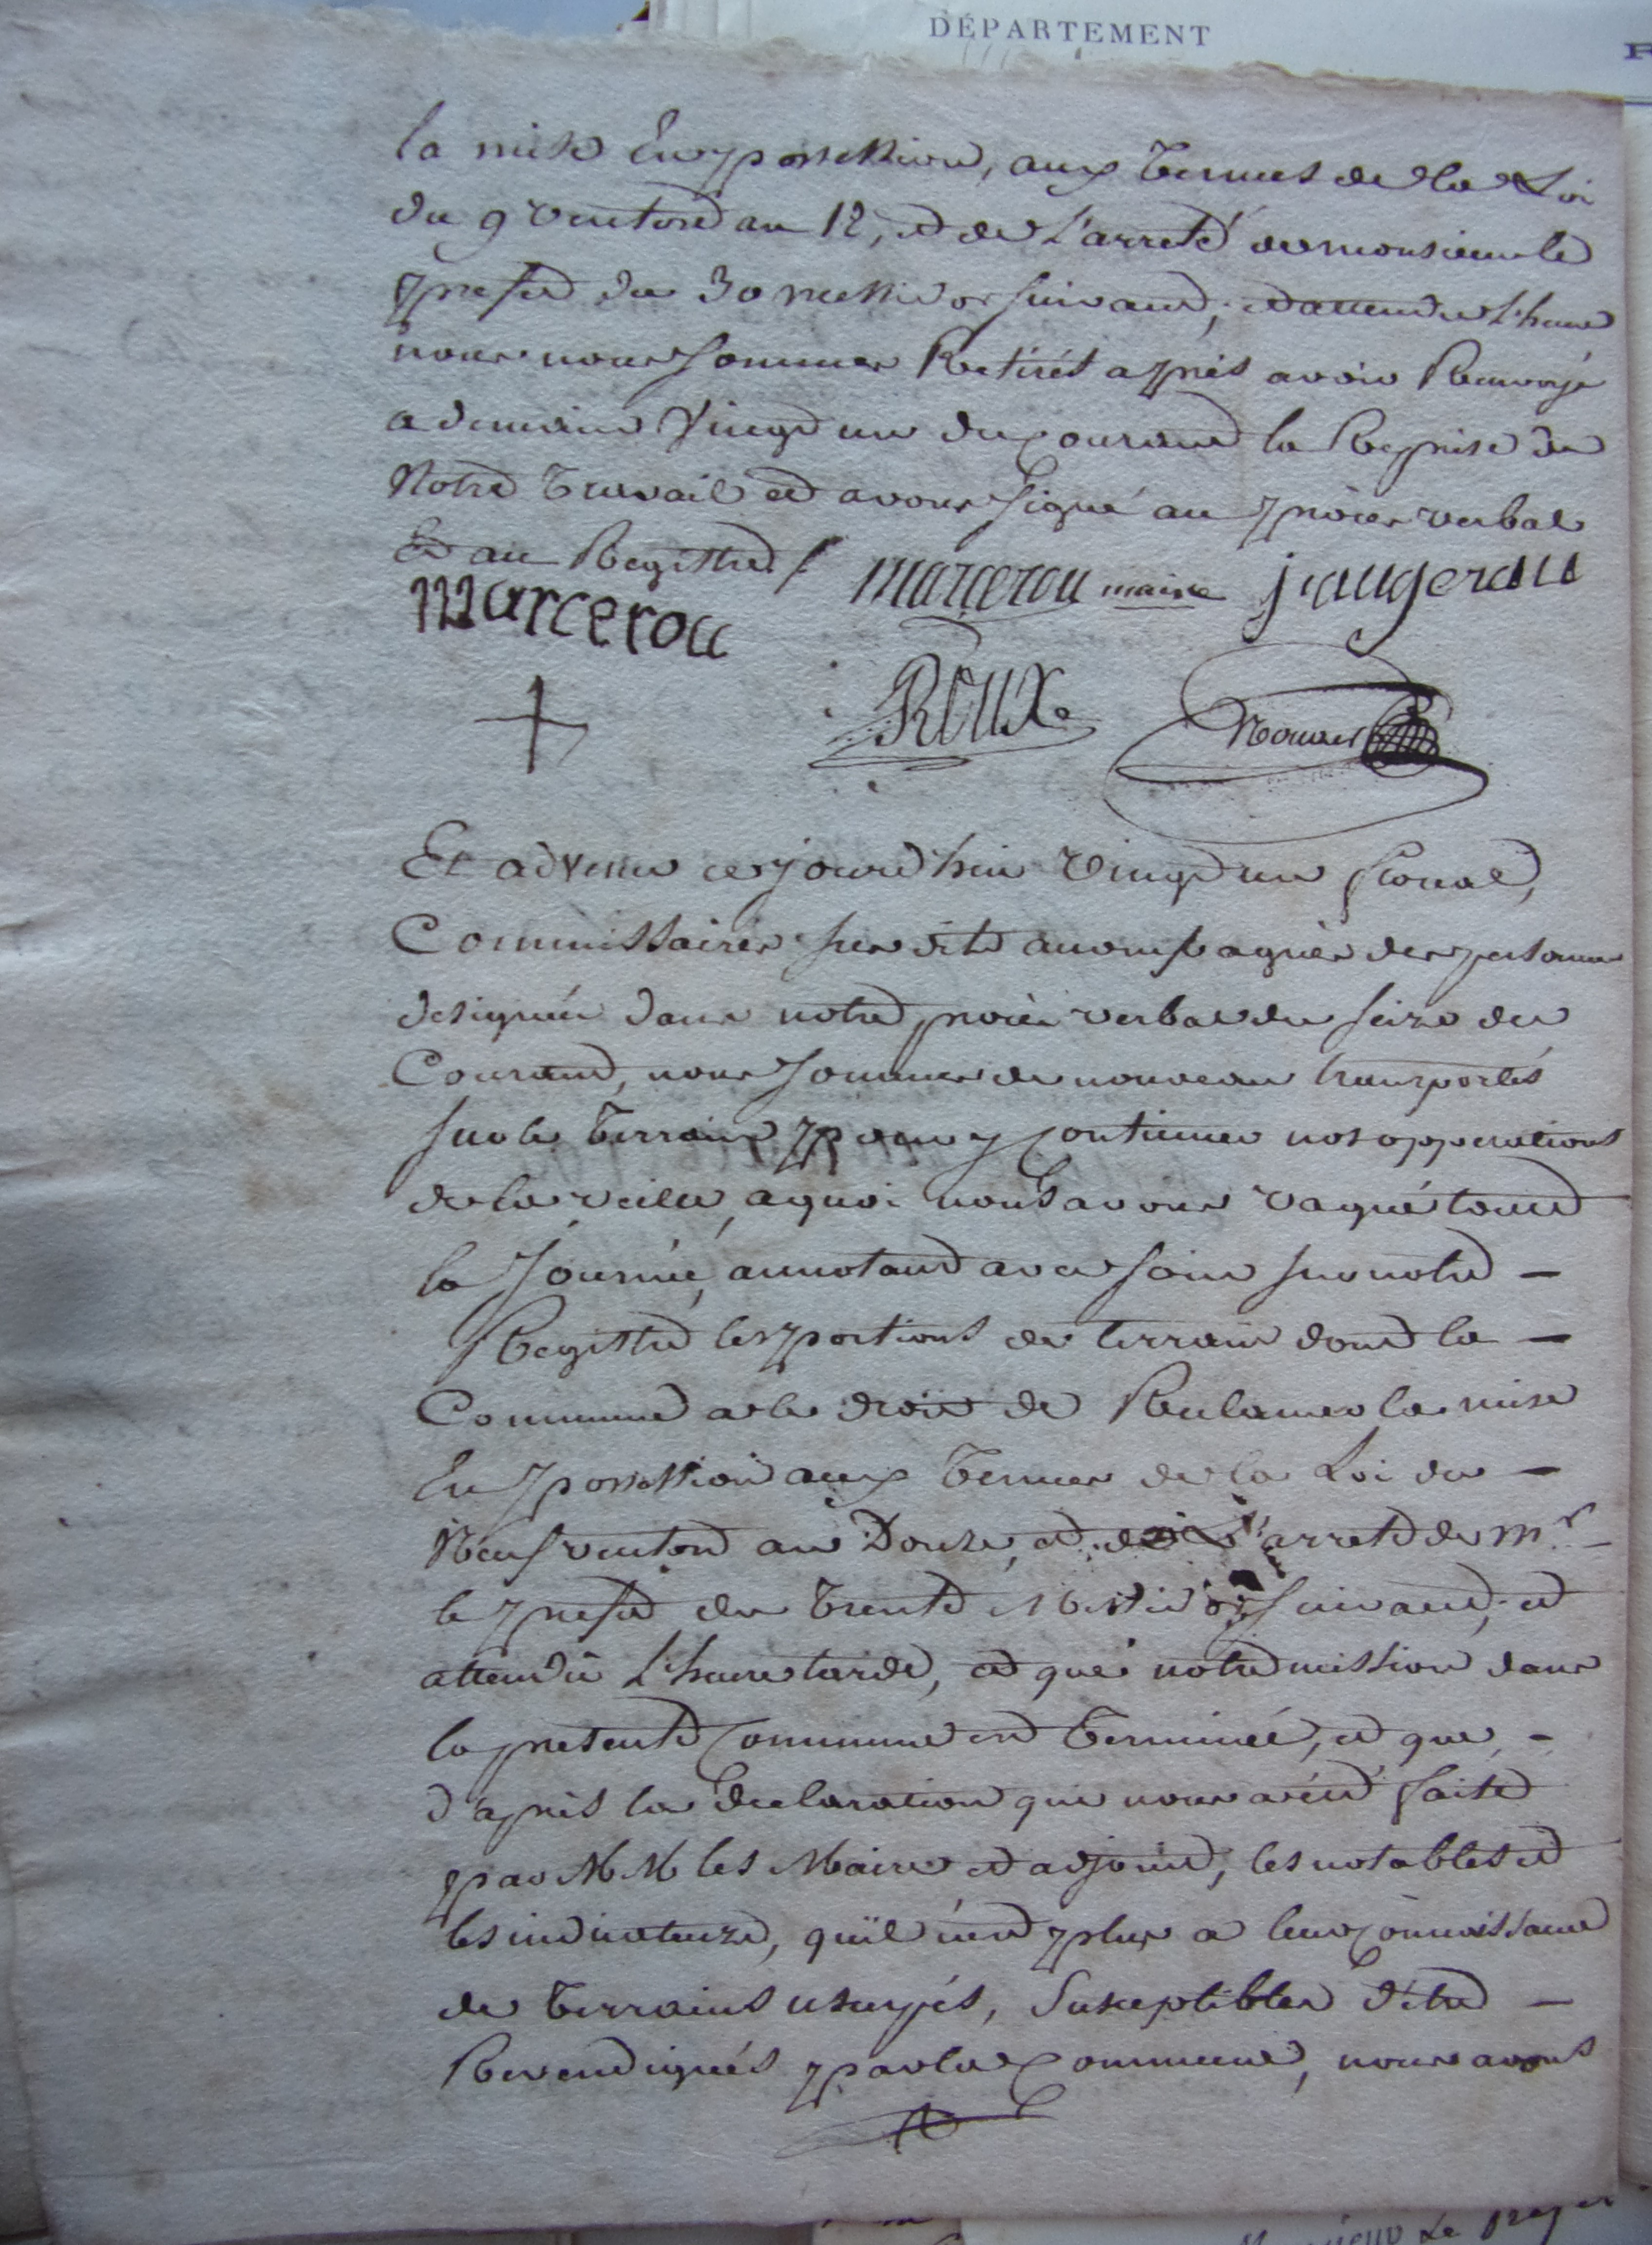 DÉPARTEMENT
la mise En possession, aux termes de la Loi
du 9 ventose an 12, et de L'arreté de monsieur le
prefet du 30 messidor suivant; et attendu L'heure
nous nous sommes Retirés après avoir Renvoyé
a demain vingt un du Courant la Reprise de
Notre travail et avons signé au procès verbal
Et au Registre
marcerou maire jaugerau
marcerou
ROUX
Et advenu ce jourd'hui vingt un floreal,
Commissaires susdits accompagnés des personnes
designées dans notre procès verbal du seize du
Courant, nous sommes de nouveau transportés
sur le terrain pour y Continuer nos opperations
de la veille, a quoi nous avons vaqué toute
la Journée, annotant avec soin sur notre
Registre les portions de terrain dont la
Commune a le droit de Reclamer la mise
En possession aux termes de la Loi du
Neuf ventose an Douze, et de L'arreté de Mr.
le prefet du trente Messidor suivant; et
attendu L'heure tarde, et que notre mission dans
la presente Commune est terminée, et que
d'après la declaration que nous a été faite
par MM les Maire et adjoint, les notables et
les indicateurs, qu'il n'est plus a leur Connoissance
de terrains usurpés, Susceptibles d'être
Revendiqués par la Commune, nous avons